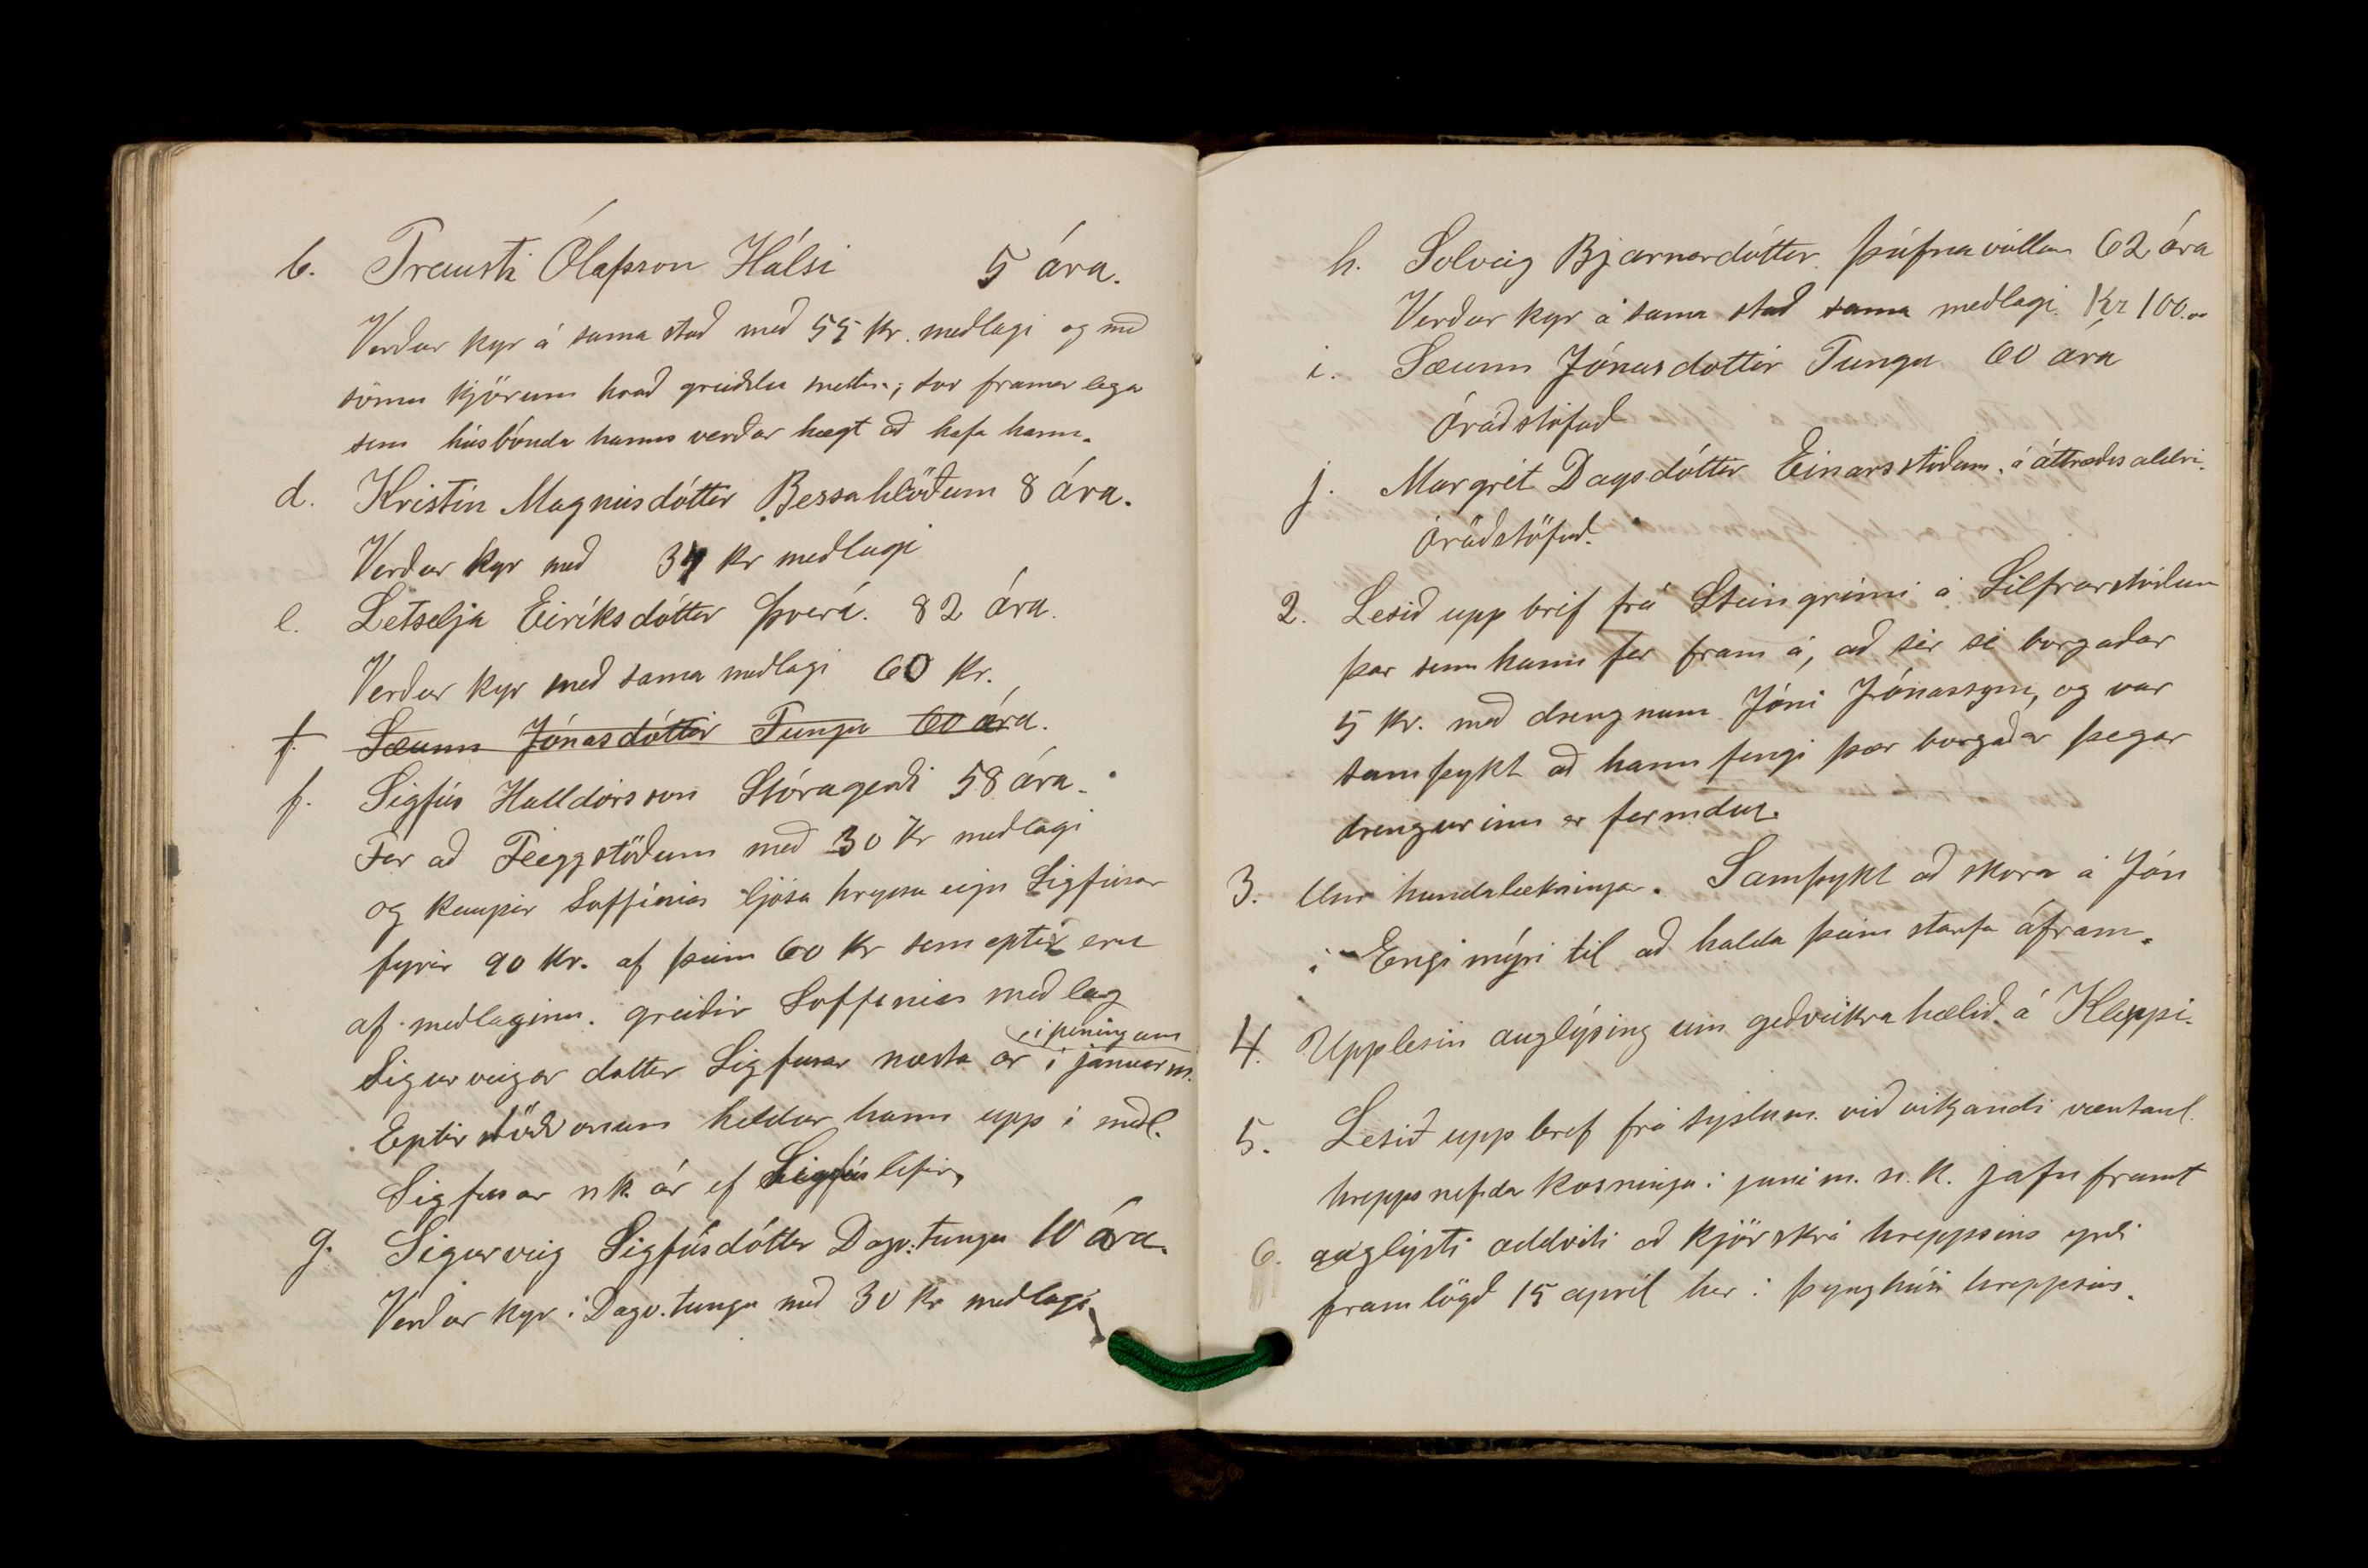 b. Trausti Ólafsson Hálsi 5 ára.
Verður kyr á sama stað með 55 kr. meðlagi og með
sömu kjörum hvað greiðslu snertir, svo framarlega
sem húsbónda hanns verður hægt að hafa hann.
d. Kristín Magnúsdóttir Bessahlöðum 8 ára.
Verður kyr með 34 kr meðlagi
e. Letselja Eiríksdóttir Þverá. 82 ára.
Verður kyr með sama meðlagi 60 kr.
f. Sæunn Jónasdóttir Tungu 60 ára.
f. Sigfús Halldórsson Stóragerði 58 ára.
Fer að Fleggstöðum með 30 kr meðlagi
og kaupir Soffónías ljósa hryssu eign Sigfúsar
fyrir 90 kr. af þeim 60 kr sem eptir eru
af meðlaginu. greiðir Soffonias meðlag
í peningum
Sigurveigar dóttir Sigfusar næsta ár í januar m.
Eptirstöðvonum heldur hann upp í meðl.
Sigfusar nk. ár ef Sigfús lifir.
g. Sigurveig Sigfúsdóttir Dagv.tungu 10 ára.
Verður kyr í Dagv.tungu með 30 kr meðlagi
h. Solveig Bjarnardóttir Þúfnavöllum 62 ára
Verður kyr á sama stað sama meðlagi. Kr 100.00
i. Sæunn Jónasdottir Tungu 60 ara
Óráðstöfuð
j. Margrét Dagsdóttir Einarsstöðum. á áttræðis aldri.
óráðstöfuð.
2. Lesið upp brif frá Steingrími á Silfrarstöðum
þar sem hann fer fram á, að sér sé borgaðar
5 kr. með drengnum Jóni Jónassyni, og var
samþykt að hann fengi þær borgaðar þegar
drengurinn er fermdur.
3. Um hundalækningar. Samþykt að skora á Jón
í Engimýri til að halda þeim starfa áfram.
4. Upplesin auglýsing um geðveikrahælið á Kleppi.
5. Lesið upp bref frá syslum. við vikjandi væntanl.
hreppsnefnda kosningu í juní m. n.k. jafnframt
6. auglýsti oddviti að kjörskrá hreppsins yrði
framlögð 15 apríl her í þynghúsi hreppsins.